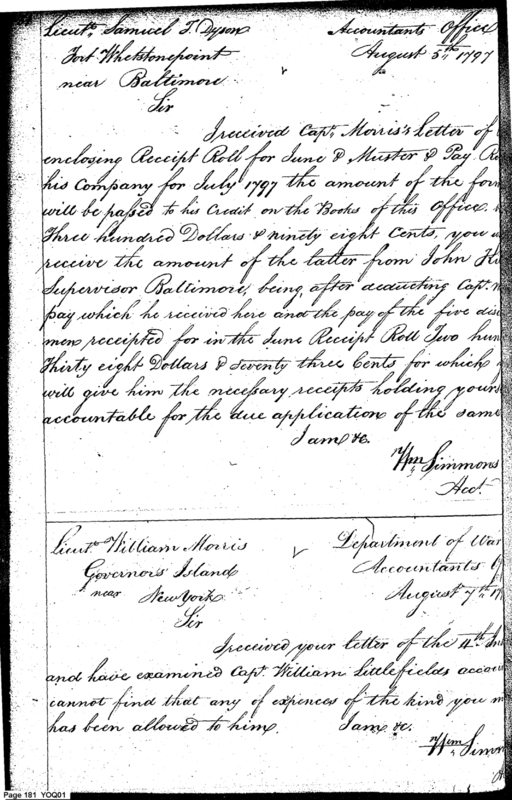 Lieutt. Samuel T. Dyson Accountants Office
Fort Whetstonepoint August 5th 1797
near Baltimore
Sir
I received Capt. Morris's Letter of
enclosing Receipt Roll for June & Muster & Pay Ro
his Company for July 1797 the amount of the for
will be passed to his Credit on the Books of this Office.
Three hundred Dollars & ninety eight Cents, you
receive the amount of the latter from John
Supervisor Baltimore, being, after deducting Capt. M
pay which he received here and the pay of the five
men receipted for in the June Receipt Roll Two hun
Thirty eight Dollars & Seventy three Cents for which
will give him the necessary receipts holding your
accountable for the due application of the same
I am &c.
Wm Simmons
Acct.
Lieutt. William Morris Department of War
Governors Island Accountants O
near New York August 7th 17
Sir
I received your letter of the 4th Ins
and have examined Capt. William Littlefields accou
cannot find that any of expences of the kind you m
has been allowed to him. I am &c.
Wm Simm
A
Page 181 YOQ01